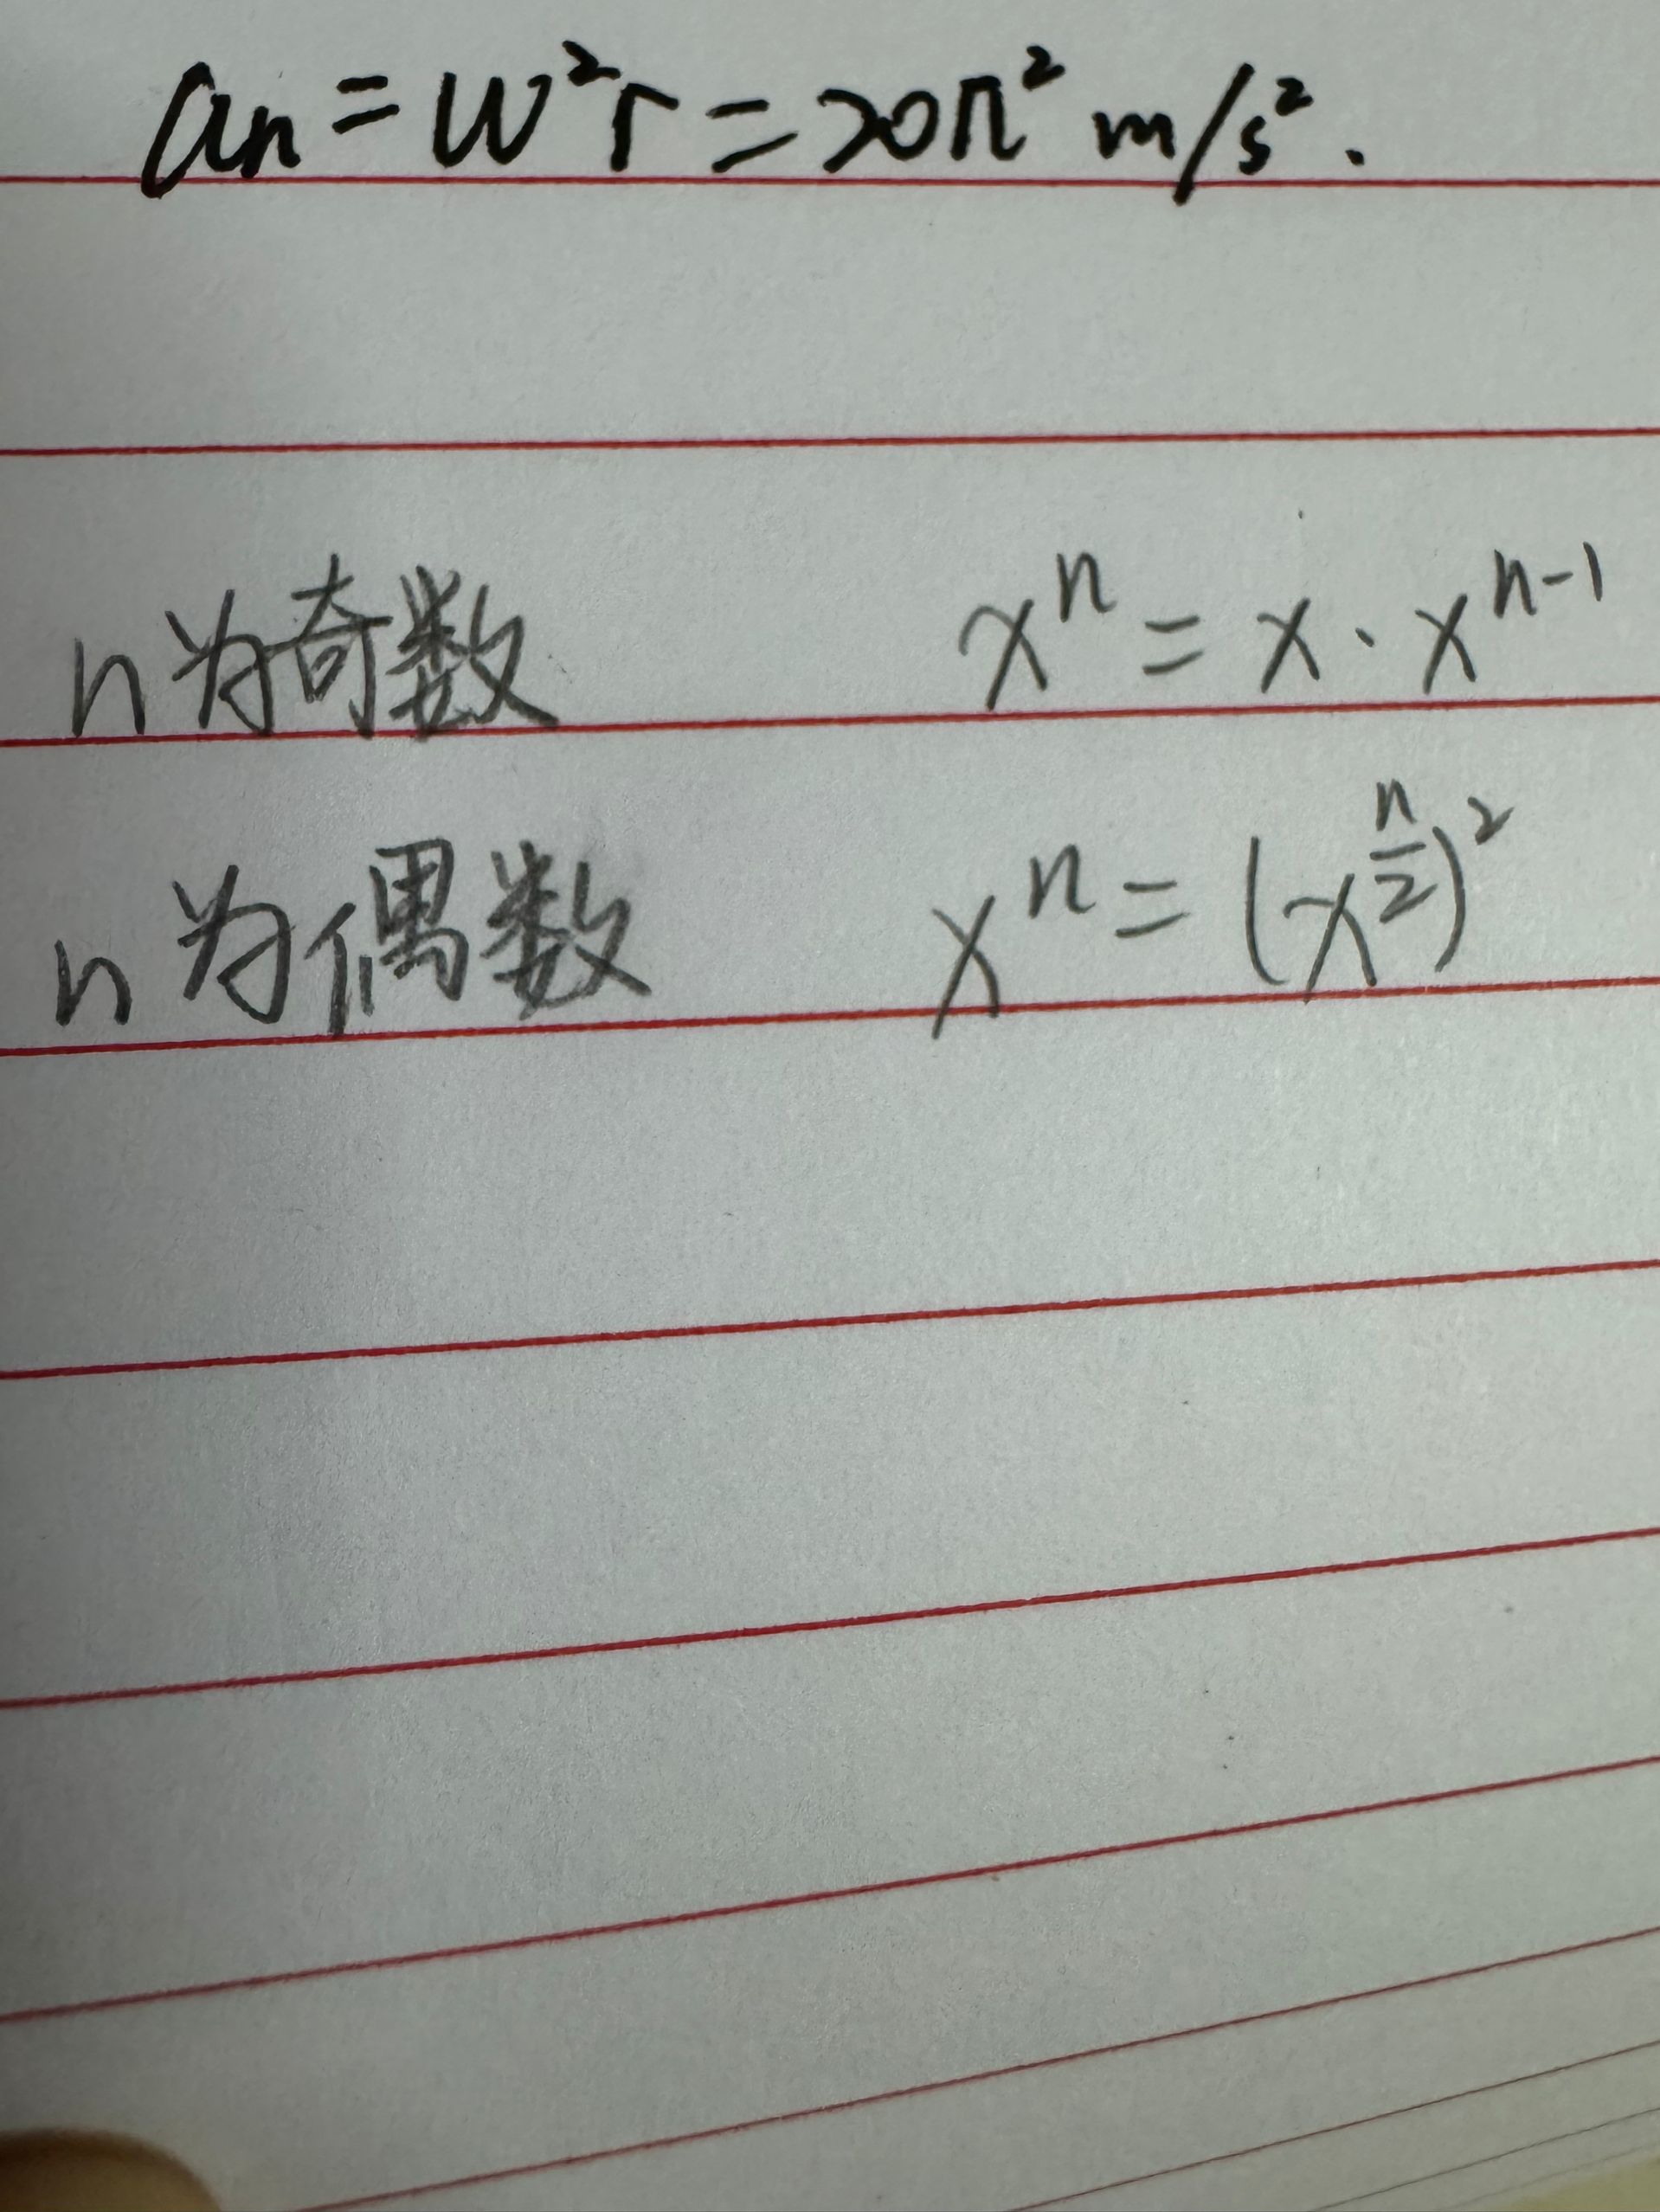 an = ω²r = 20π² m/s².
n为奇数 xⁿ = x · xⁿ⁻¹
n为偶数 xⁿ = (x^(n/2))²